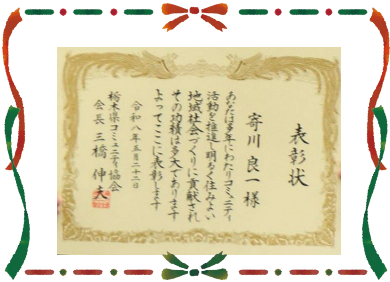 表彰状
寄川良一様
あなたは多年にわたりコミュニティ
活動を推進し明るく住みよい
地域社会づくりに貢献され
その功績は多大であります
よってここに表彰します
令和八年五月二十二日
栃木県コミュニティ協会
会長 三橋伸夫